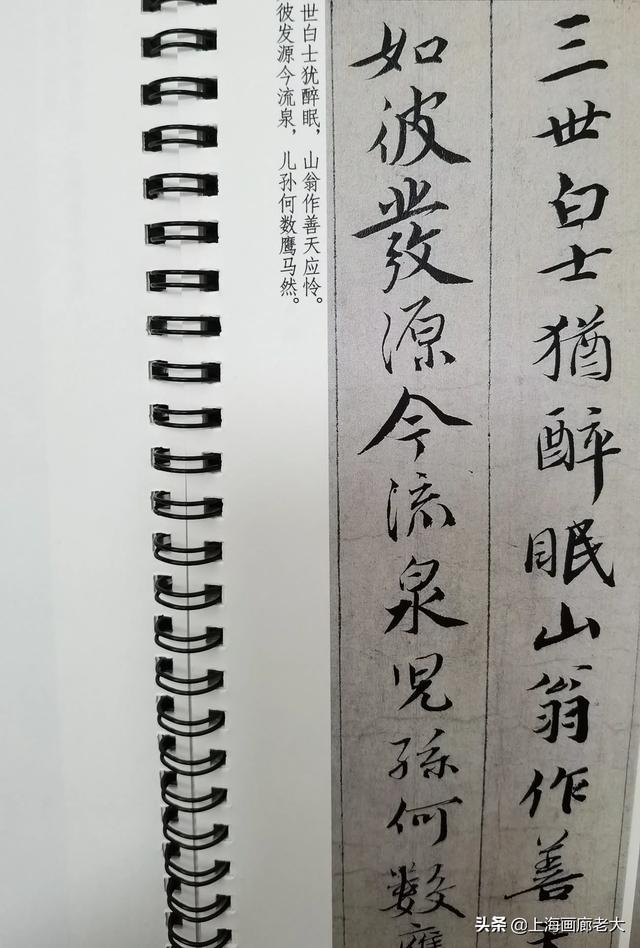 三世白士猶醉眠山翁作善
如彼發源今流泉兒孫何數
世白士犹醉眠，山翁作善天应怜。
彼发源今流泉，儿孙何数鹰马然。
头条 @上海画廊老大